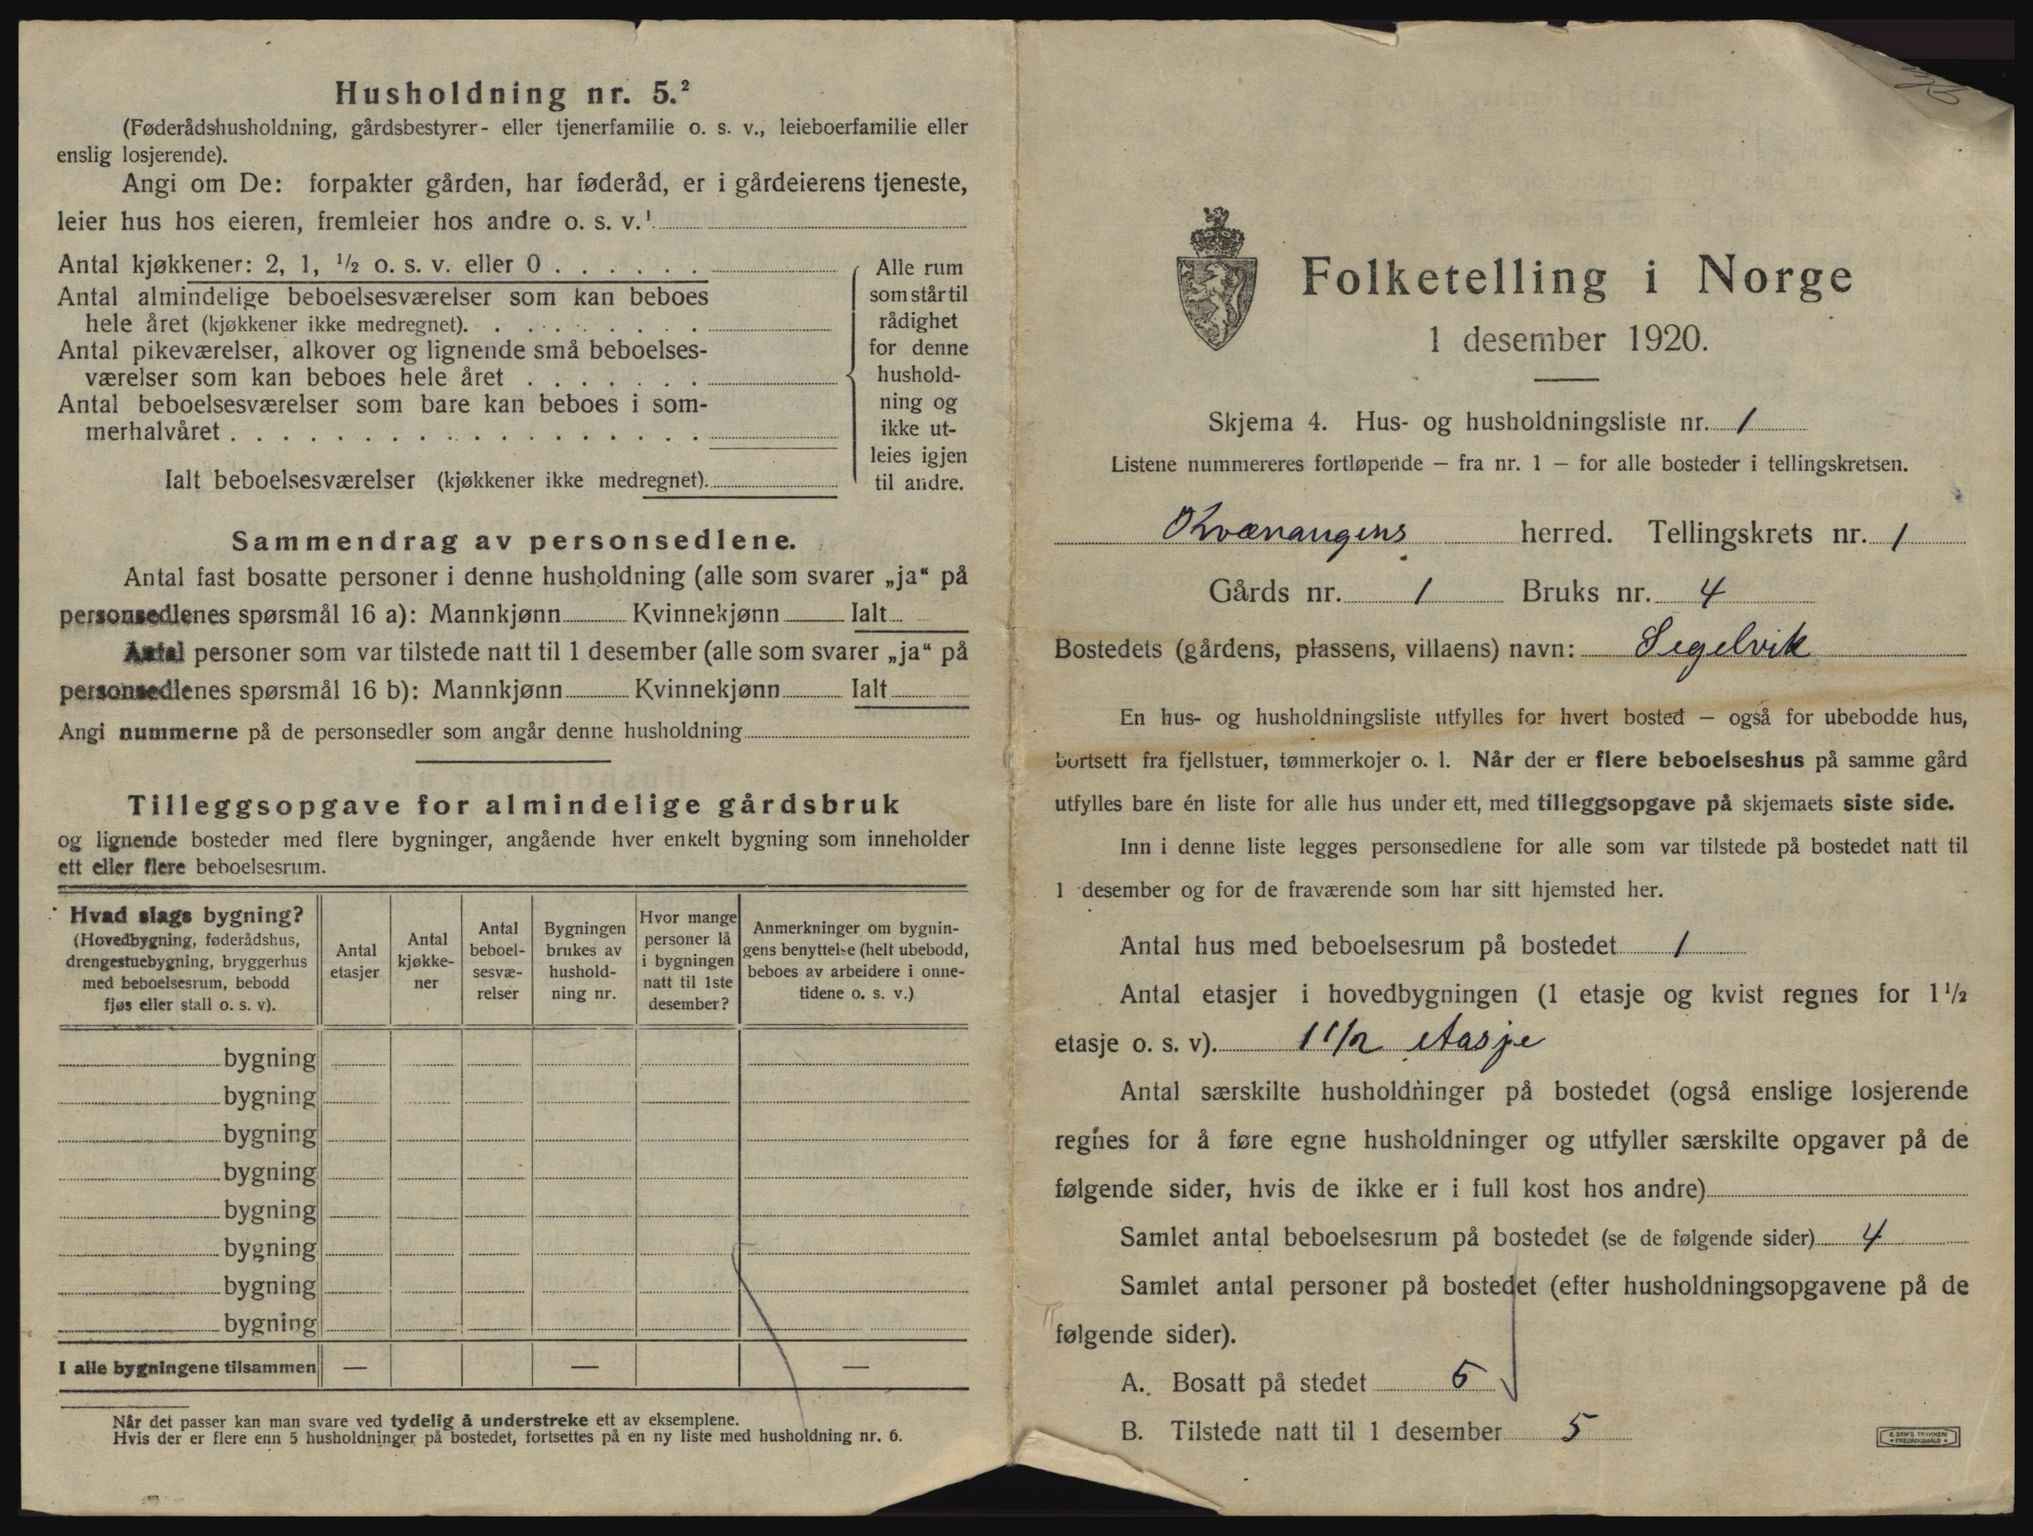 Husholdning nr. 5.²
(Føderådshusholdning, gårdsbestyrer- eller tjenerfamilie o. s. v., leieboerfamilie eller
enslig losjerende).
Angi om De: forpakter gården, har føderåd, er i gårdeierens tjeneste,
leier hus hos eieren, fremleier hos andre o. s. v.¹
Antal kjøkkener: 2, 1, ½ o. s. v. eller 0 . . . . . .
Antal almindelige beboelsesværelser som kan beboes
hele året (kjøkkener ikke medregnet). . . . . . . . .
Antal pikeværelser, alkover og lignende små beboelses-
værelser som kan beboes hele året . . . . . . .
Antal beboelsesværelser som bare kan beboes i som-
merhalvåret . . . . . . . . . . . . . . . . . .
Ialt beboelsesværelser (kjøkkener ikke medregnet).
Alle rum
som står til
rådighet
for denne
hushold-
ning og
ikke ut-
leies igjen
til andre.
Sammendrag av personsedlene.
Antal fast bosatte personer i denne husholdning (alle som svarer „ja“ på
personsedlenes spørsmål 16 a): Mannkjønn Kvinnekjønn Ialt
Antal personer som var tilstede natt til 1 desember (alle som svarer „ja“ på
personsedlenes spørsmål 16 b): Mannkjønn Kvinnekjønn Ialt
Angi nummerne på de personsedler som angår denne husholdning
Tilleggsopgave for almindelige gårdsbruk
og lignende bosteder med flere bygninger, angående hver enkelt bygning som inneholder
ett eller flere beboelsesrum.
Hvad slags bygning?
(Hovedbygning, føderådshus,
drengestuebygning, bryggerhus
med beboelsesrum, bebodd
fjøs eller stall o. s. v).
Antal
etasjer
Antal
kjøkke-
ner
Antal
beboel-
sesvæ-
relser
Bygningen
brukes av
hushold-
ning nr.
Hvor mange
personer lå
i bygningen
natt til 1ste
desember?
Anmerkninger om bygnin-
gens benyttelse (helt ubebodd,
beboes av arbeidere i onne-
tidene o. s. v.)
bygning
bygning
bygning
bygning
bygning
bygning
bygning
bygning
I alle bygningene tilsammen — — —
Når det passer kan man svare ved tydelig å understreke ett av eksemplene.
Hvis der er flere enn 5 husholdninger på bostedet, fortsettes på en ny liste med husholdning nr. 6.
Folketelling i Norge
1 desember 1920.
Skjema 4. Hus- og husholdningsliste nr. 1
Listene nummereres fortløpende – fra nr. 1 – for alle bosteder i tellingskretsen.
Kvænangens herred. Tellingskrets nr. 1
Gårds nr. 1 Bruks nr. 4
Bostedets (gårdens, plassens, villaens) navn: Segelvik
En hus- og husholdningsliste utfylles for hvert bosted – også for ubebodde hus,
bortsett fra fjellstuer, tømmerkojer o. l. Når der er flere beboelseshus på samme gård
utfylles bare én liste for alle hus under ett, med tilleggsopgave på skjemaets siste side.
Inn i denne liste legges personsedlene for alle som var tilstede på bostedet natt til
1 desember og for de fraværende som har sitt hjemsted her.
Antal hus med beboelsesrum på bostedet 1
Antal etasjer i hovedbygningen (1 etasje og kvist regnes for 1½
etasje o. s. v). 1 1/2 etasje
Antal særskilte husholdninger på bostedet (også enslige losjerende
regnes for å føre egne husholdninger og utfyller særskilte opgaver på de
følgende sider, hvis de ikke er i full kost hos andre)
Samlet antal beboelsesrum på bostedet (se de følgende sider) 4
Samlet antal personer på bostedet (efter husholdningsopgavene på de
følgende sider).
A. Bosatt på stedet 5
B. Tilstede natt til 1 desember 5
E. SEM'S TRYKKERI
FREDRIKSHALD